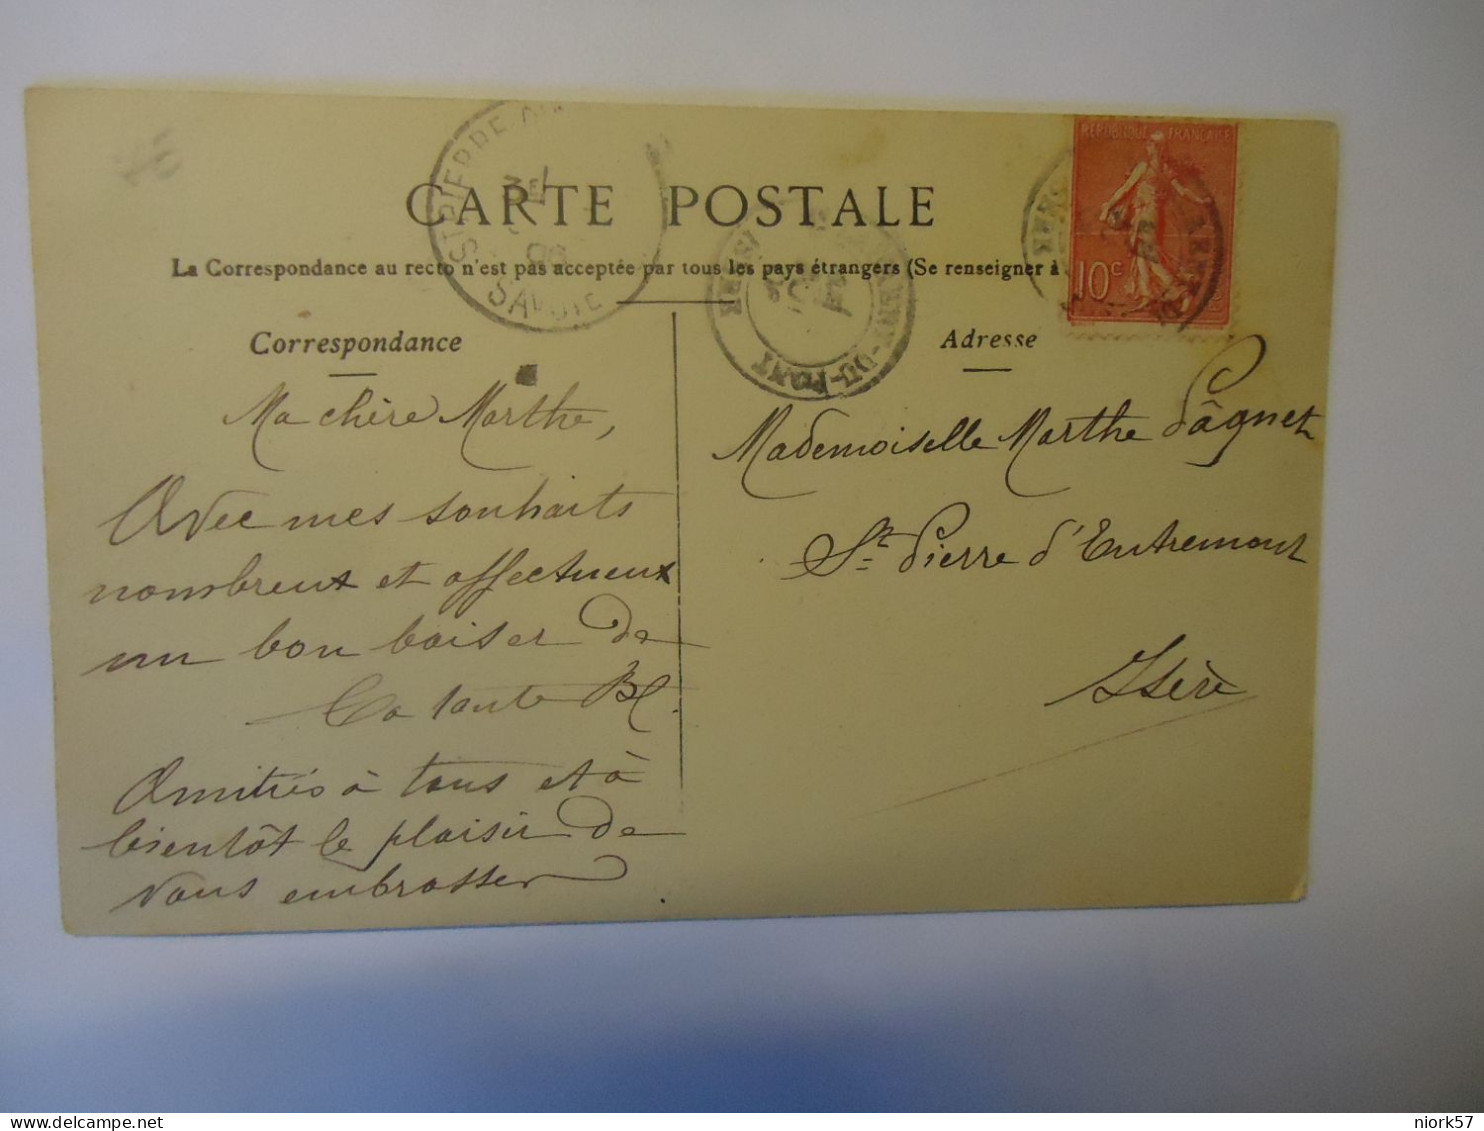 CARTE POSTALE
La Correspondance au recto n'est pas acceptée par tous les pays étrangers (Se renseigner à
Correspondance
Ma chère Marthe,
Avec mes souhaits
nombreux et affectueux
un bon baiser de
Ta tante
Amitiés à tous et à
bientôt le plaisir de
vous embrasser
Adresse
Mademoiselle Marthe Pâgnet
St Pierre d'Entremont
Isère
REPUBLIQUE FRANÇAISE
10c
ST PIERRE
SAVOIE
DU-PONT
ISERE
niork57